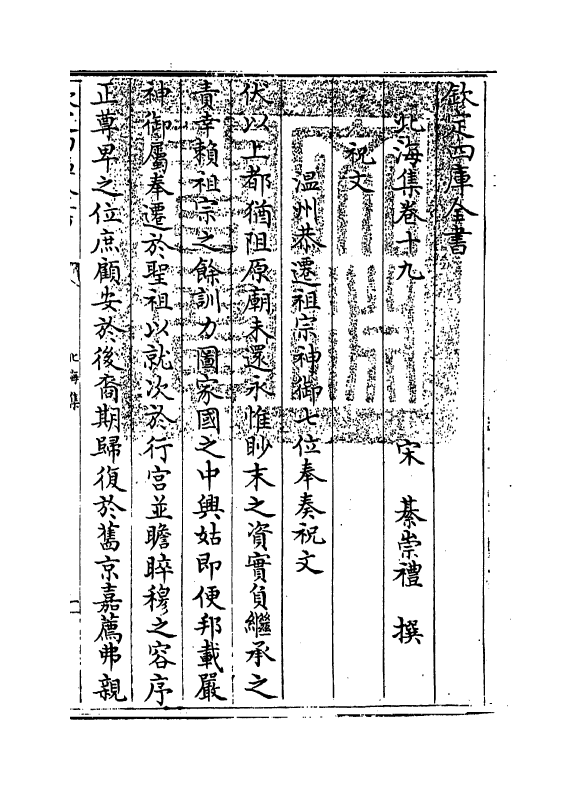 欽定四庫全書
北海集卷十九
宋 綦崇禮 撰
祝文
溫州恭遷祖宗神御七位奉奏祝文
伏以上都猶阻原廟未還永惟眇末之資實負繼承之
責幸賴祖宗之餘訓力圖家國之中興姑即便邦載嚴
神御屬奉遷於聖祖以就次於行宮並瞻睟穆之容序
正尊卑之位庶顧安於後裔期歸復於舊京嘉薦弗親
北海集
一